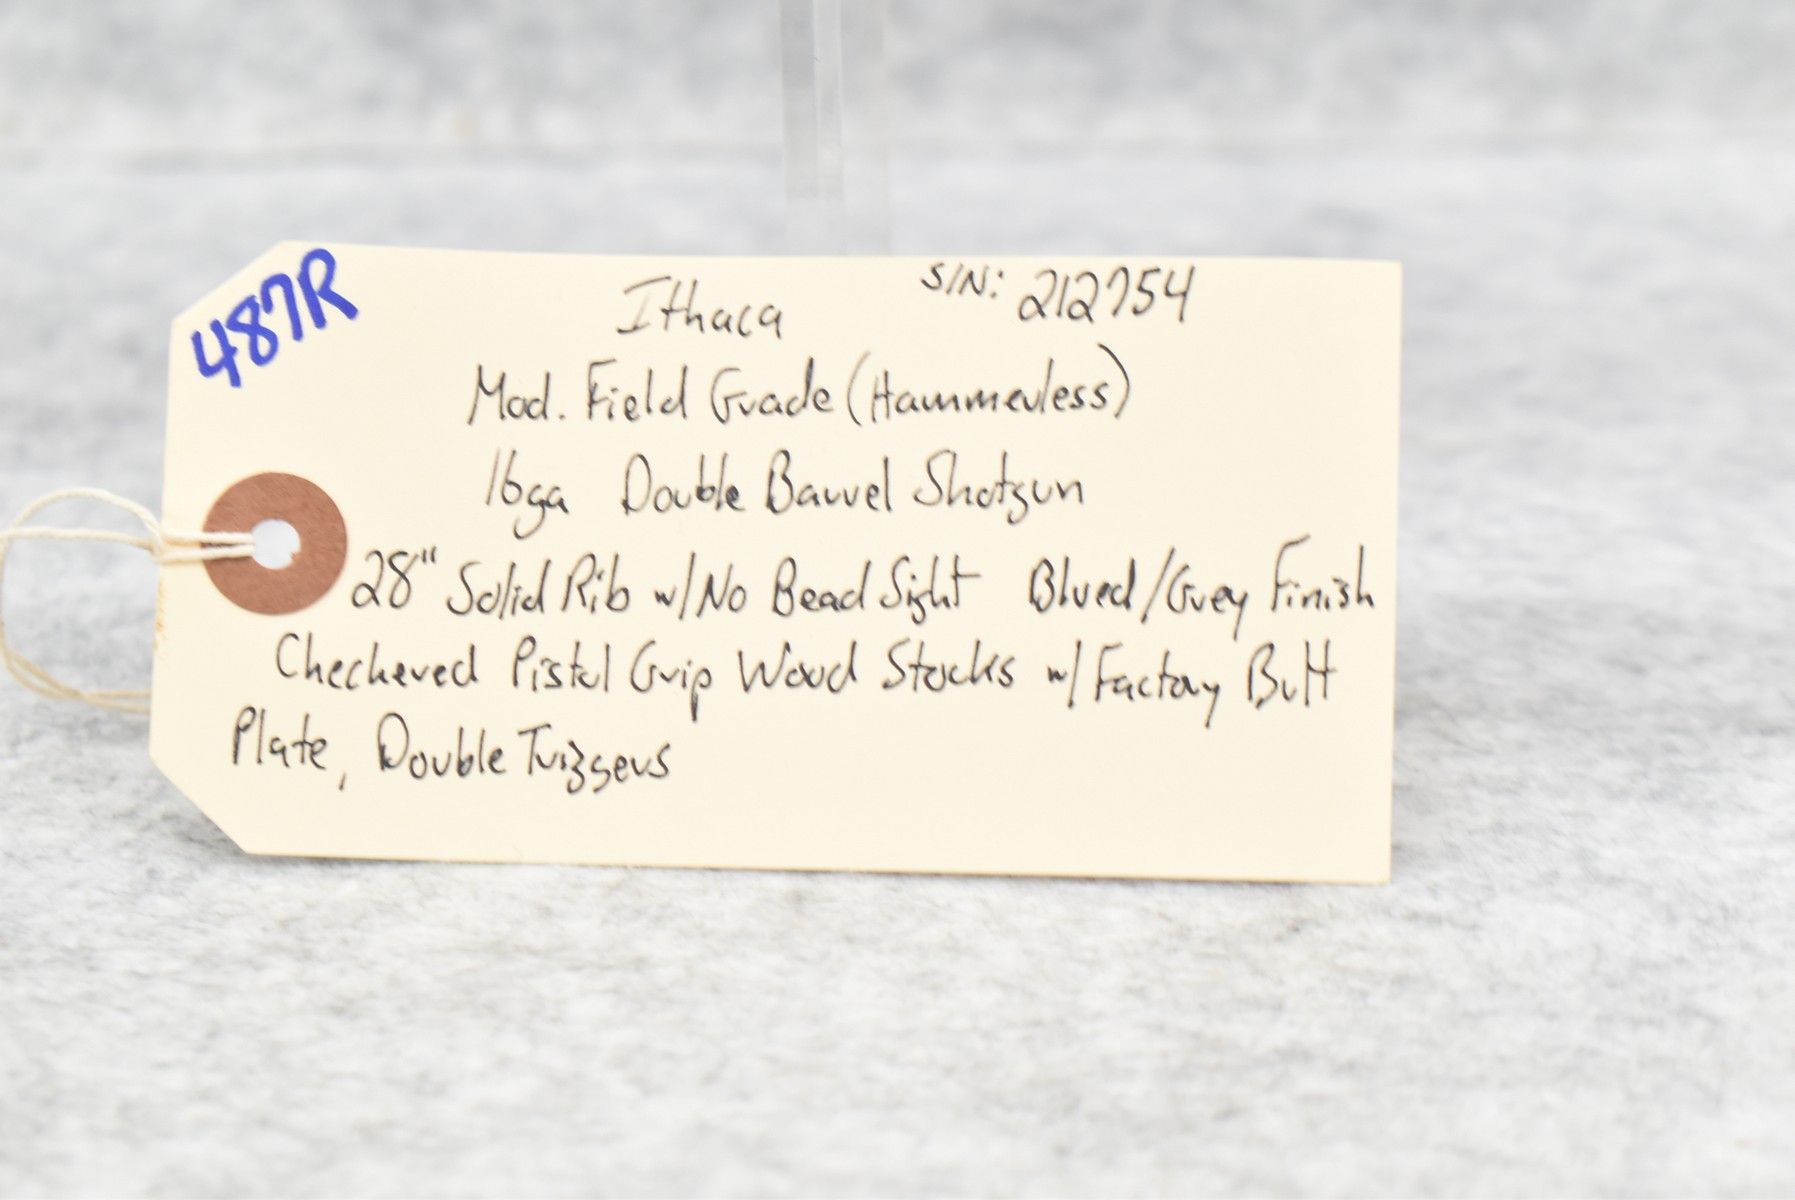 487R
Ithaca S/N: 212754
Mod. Field Grade (Hammerless)
16ga Double Barrel Shotgun
28" Solid Rib w/No Bead Sight Blued/Grey Finish
Checkered Pistol Grip Wood Stocks w/Factory Butt
Plate, Double Triggers